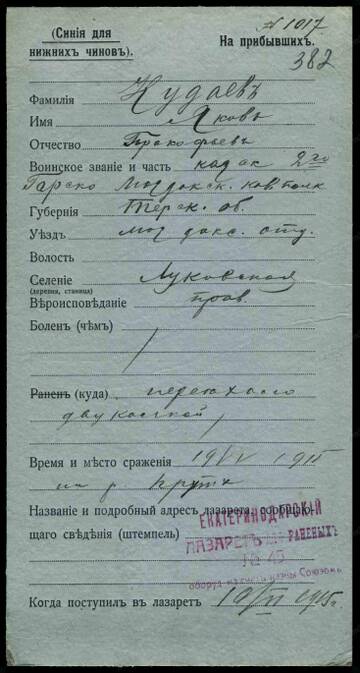 (Синія для
нижнихъ чиновъ).
№ 1017
На прибывшихъ.
382
Фамилія Кудаевъ
Имя Яковъ
Отчество Прокофьевъ
Воинское званіе и часть казак 2го
Горско Моздокск. каз. полк
Губернія Терск. об.
Уѣздъ Моздокс. отд.
Волость
Селеніе Луковская
(деревня, станица)
Вѣроисповѣданіе прав.
Боленъ (чѣмъ)
Раненъ (куда)
двуколкой
Время и мѣсто сраженія 1915
на р. Прутѣ
Названіе и подробный адресъ лазарета, сообщаю-
щаго свѣдѣнія (штемпель)
ЕКАТЕРИНОДАРСКІЙ
ЛАЗАРЕТЪ для РАНЕНЫХЪ
№ 45
Союзомъ
Когда поступилъ въ лазаретъ 1915г.